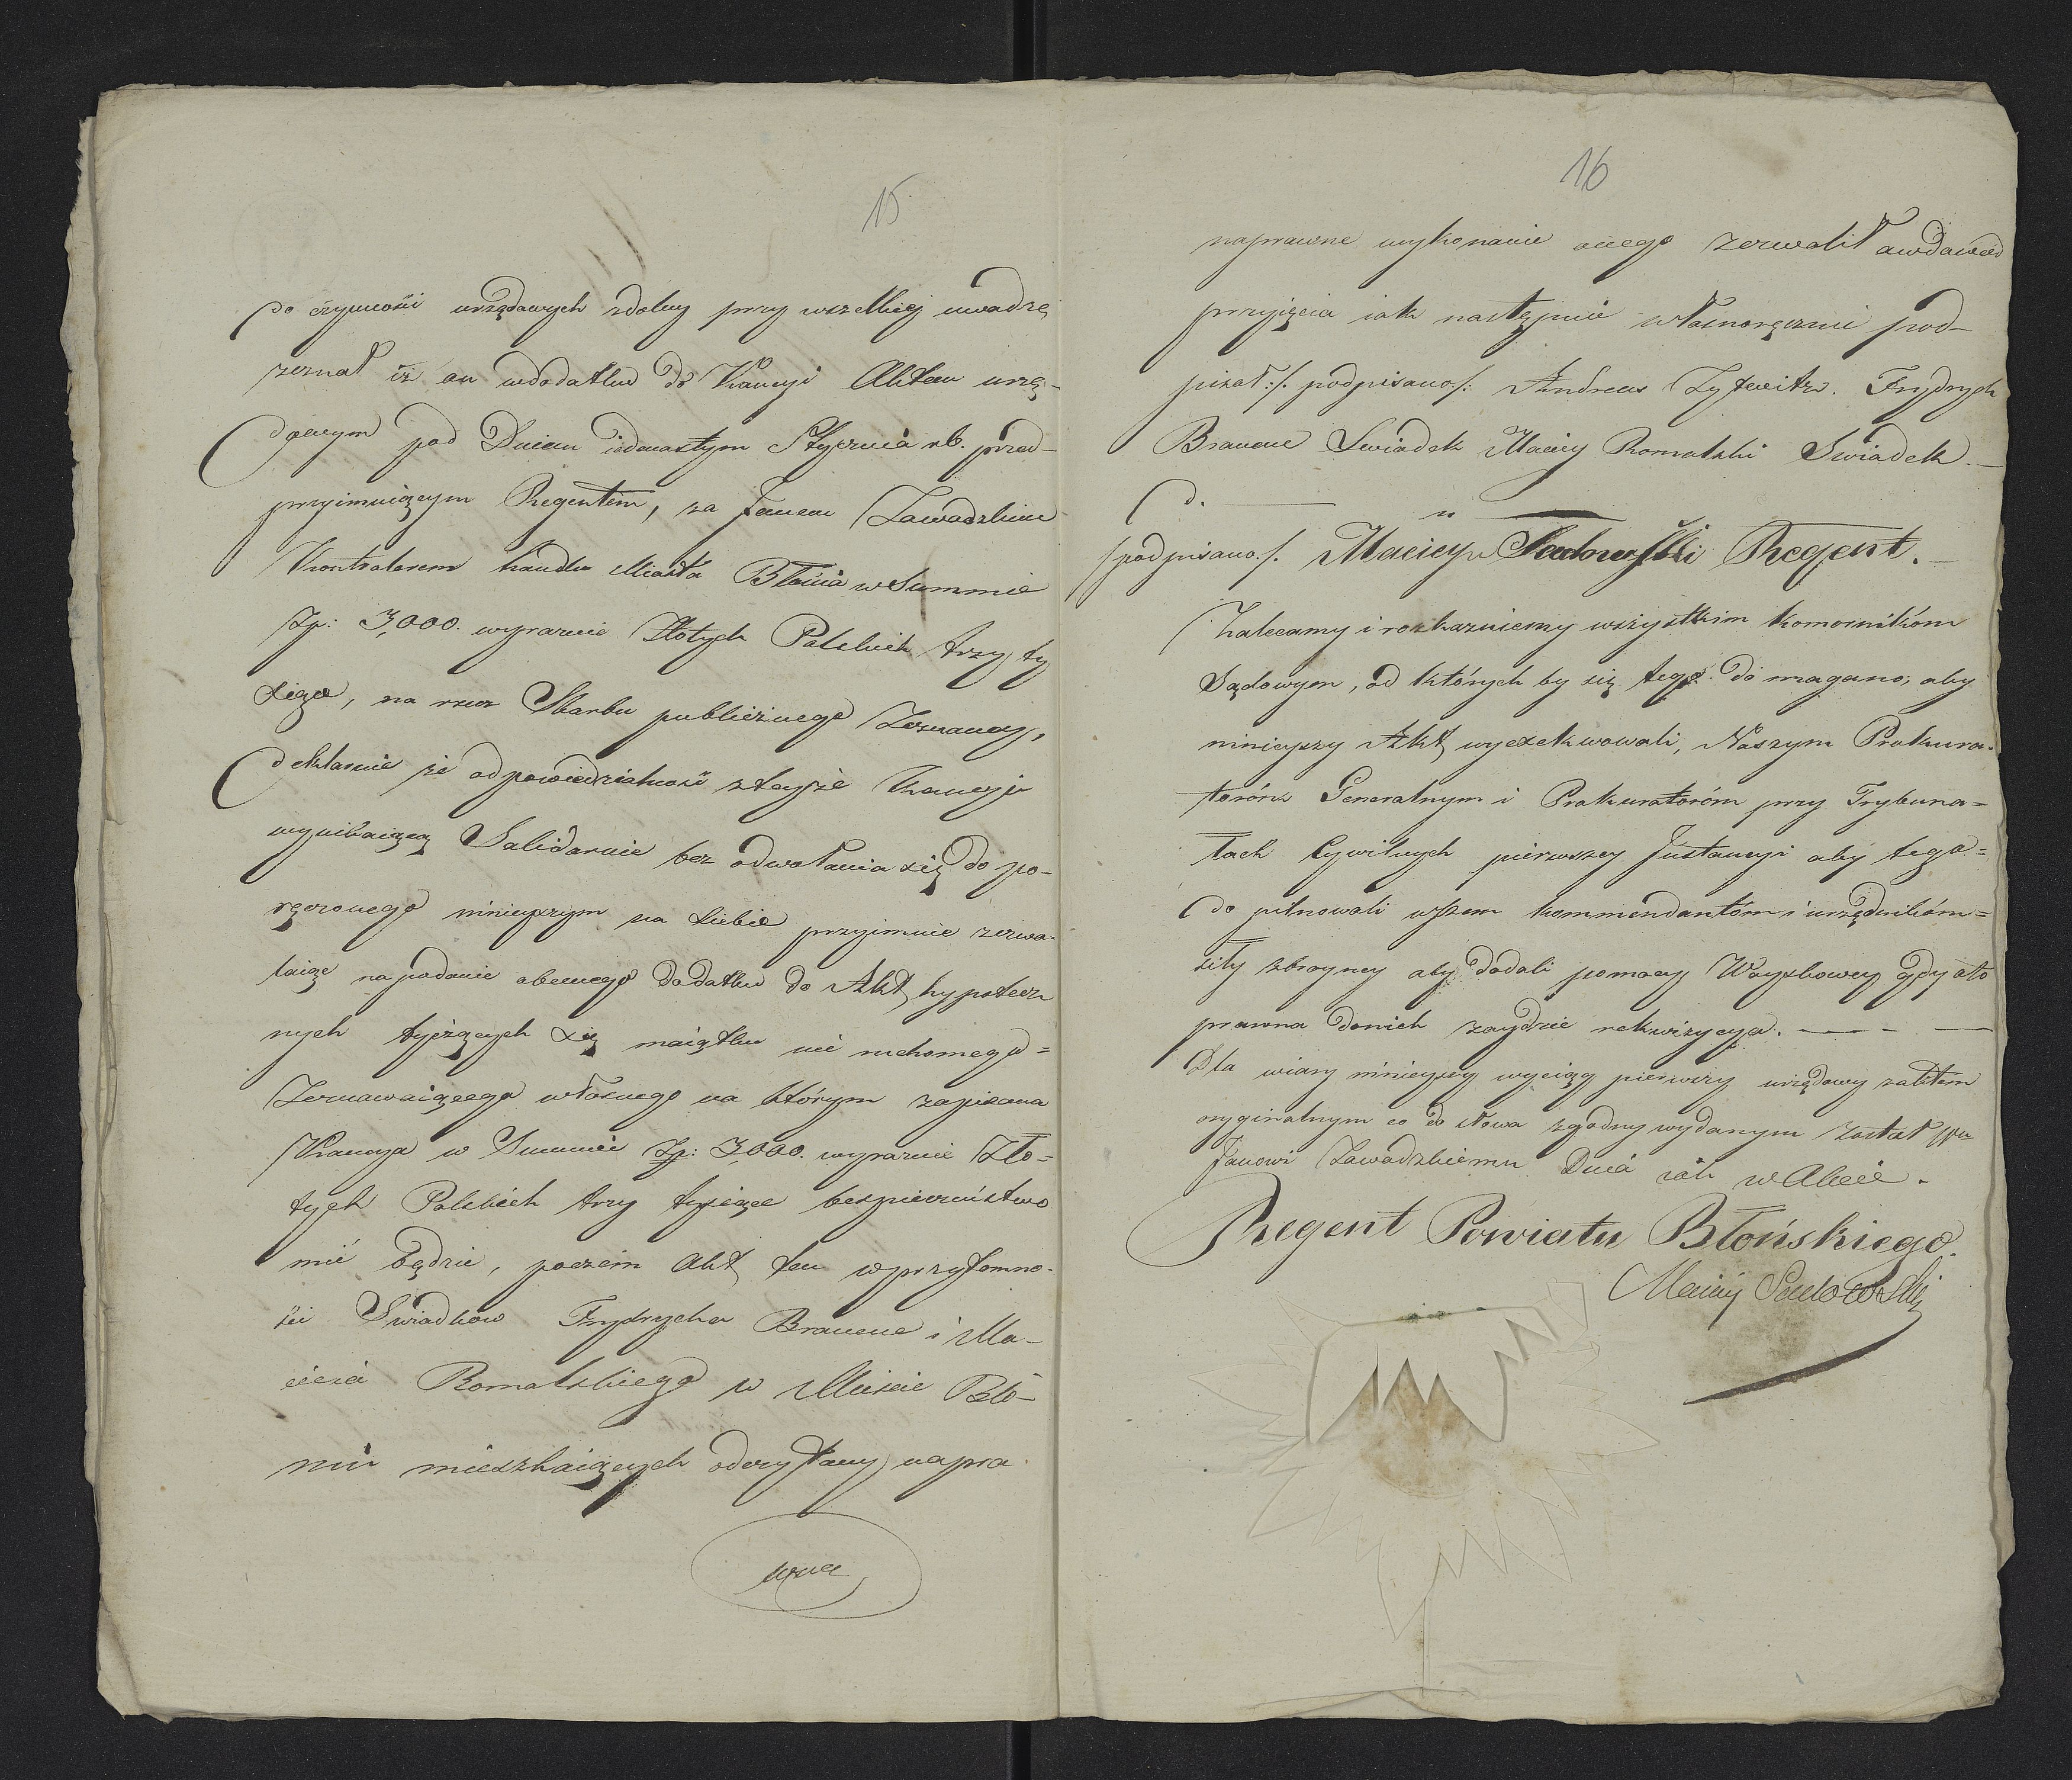 15
do czynności urzędowych zdolny przy wszelkiej uwadze
zeznał iż on w dodatku do Kaucyi Aktem urzę-
dowym pod Dniem iedenastym Stycznia rb. przed
przyimuiącym Regentem, za Janem Zawadzkim
Kontrolerem kandu Miasta Błonia w Summie
Zp: 3,000. wyraźnie Złotych Polskich trzy ty
siące, na rzecz Skarbu publicznego Zeznaney,
deklaruie że odpowiedzialność z teyże Kaucyi
wynikaiącą Solidarnie bez odwołania się do po-
ręczonego ninieyszym na siebie przyimuie zezwa-
laiąc na podanie obecnego dodatku do Akt hypotecz
nych tyczących się maiątku nie ruchomego=
Zeznawaiącego własnego na którym zapisana
Kaucya w Summie Zp: 3,000. wyraźnie Zło=
tych Polskich trzy tysiące bespieczeństwo
mieć będzie, poczem Akt ten w przytomno-
ści Swiadkow Frydrycha Braueue i Ma-
cieia Romalskiego w Mieście Bło-
niu mieszkaiących odczytany napra-
wne
16
naprawne wykonanie onego zezwolił a w dowod
przyięcia iak następuie własnoręcznie pod-
pisał:/. podpisano/: Andreas Zyfewitz. Frydrych
Braueue Swiadek Maciey Romalski Swiadek.—
d. —
/podpisano./. Maciey Sadowski Regent.—
Zalecamy i rozkazuiemy wszystkim komornikóm
Sądowym, od których by się tego do magano, aby
ninieyszy Akt wyexekwowali, Naszym Prokura-
toróm Generalnym i Prokuratoróm przy Trybuna=
łach Cywilnych pierwszey Instancyi aby tego=
do pilnowali wszem kommendantóm i urzędnikóm=
siły zbroyney aby dodali pomocy Woyskowey gdy oto
prawna donich zaydzie rekwizycya. — — —
Dla wiary ninieyszy wyciąg pierwszy urzędowy zaktem
oryginalnym co do słowa zgodny wydanym został
Janowi Zawadzkiemu Dnia iak w Akcie.
Regent Powiatu Błońskiego.
Maciej Sadowski